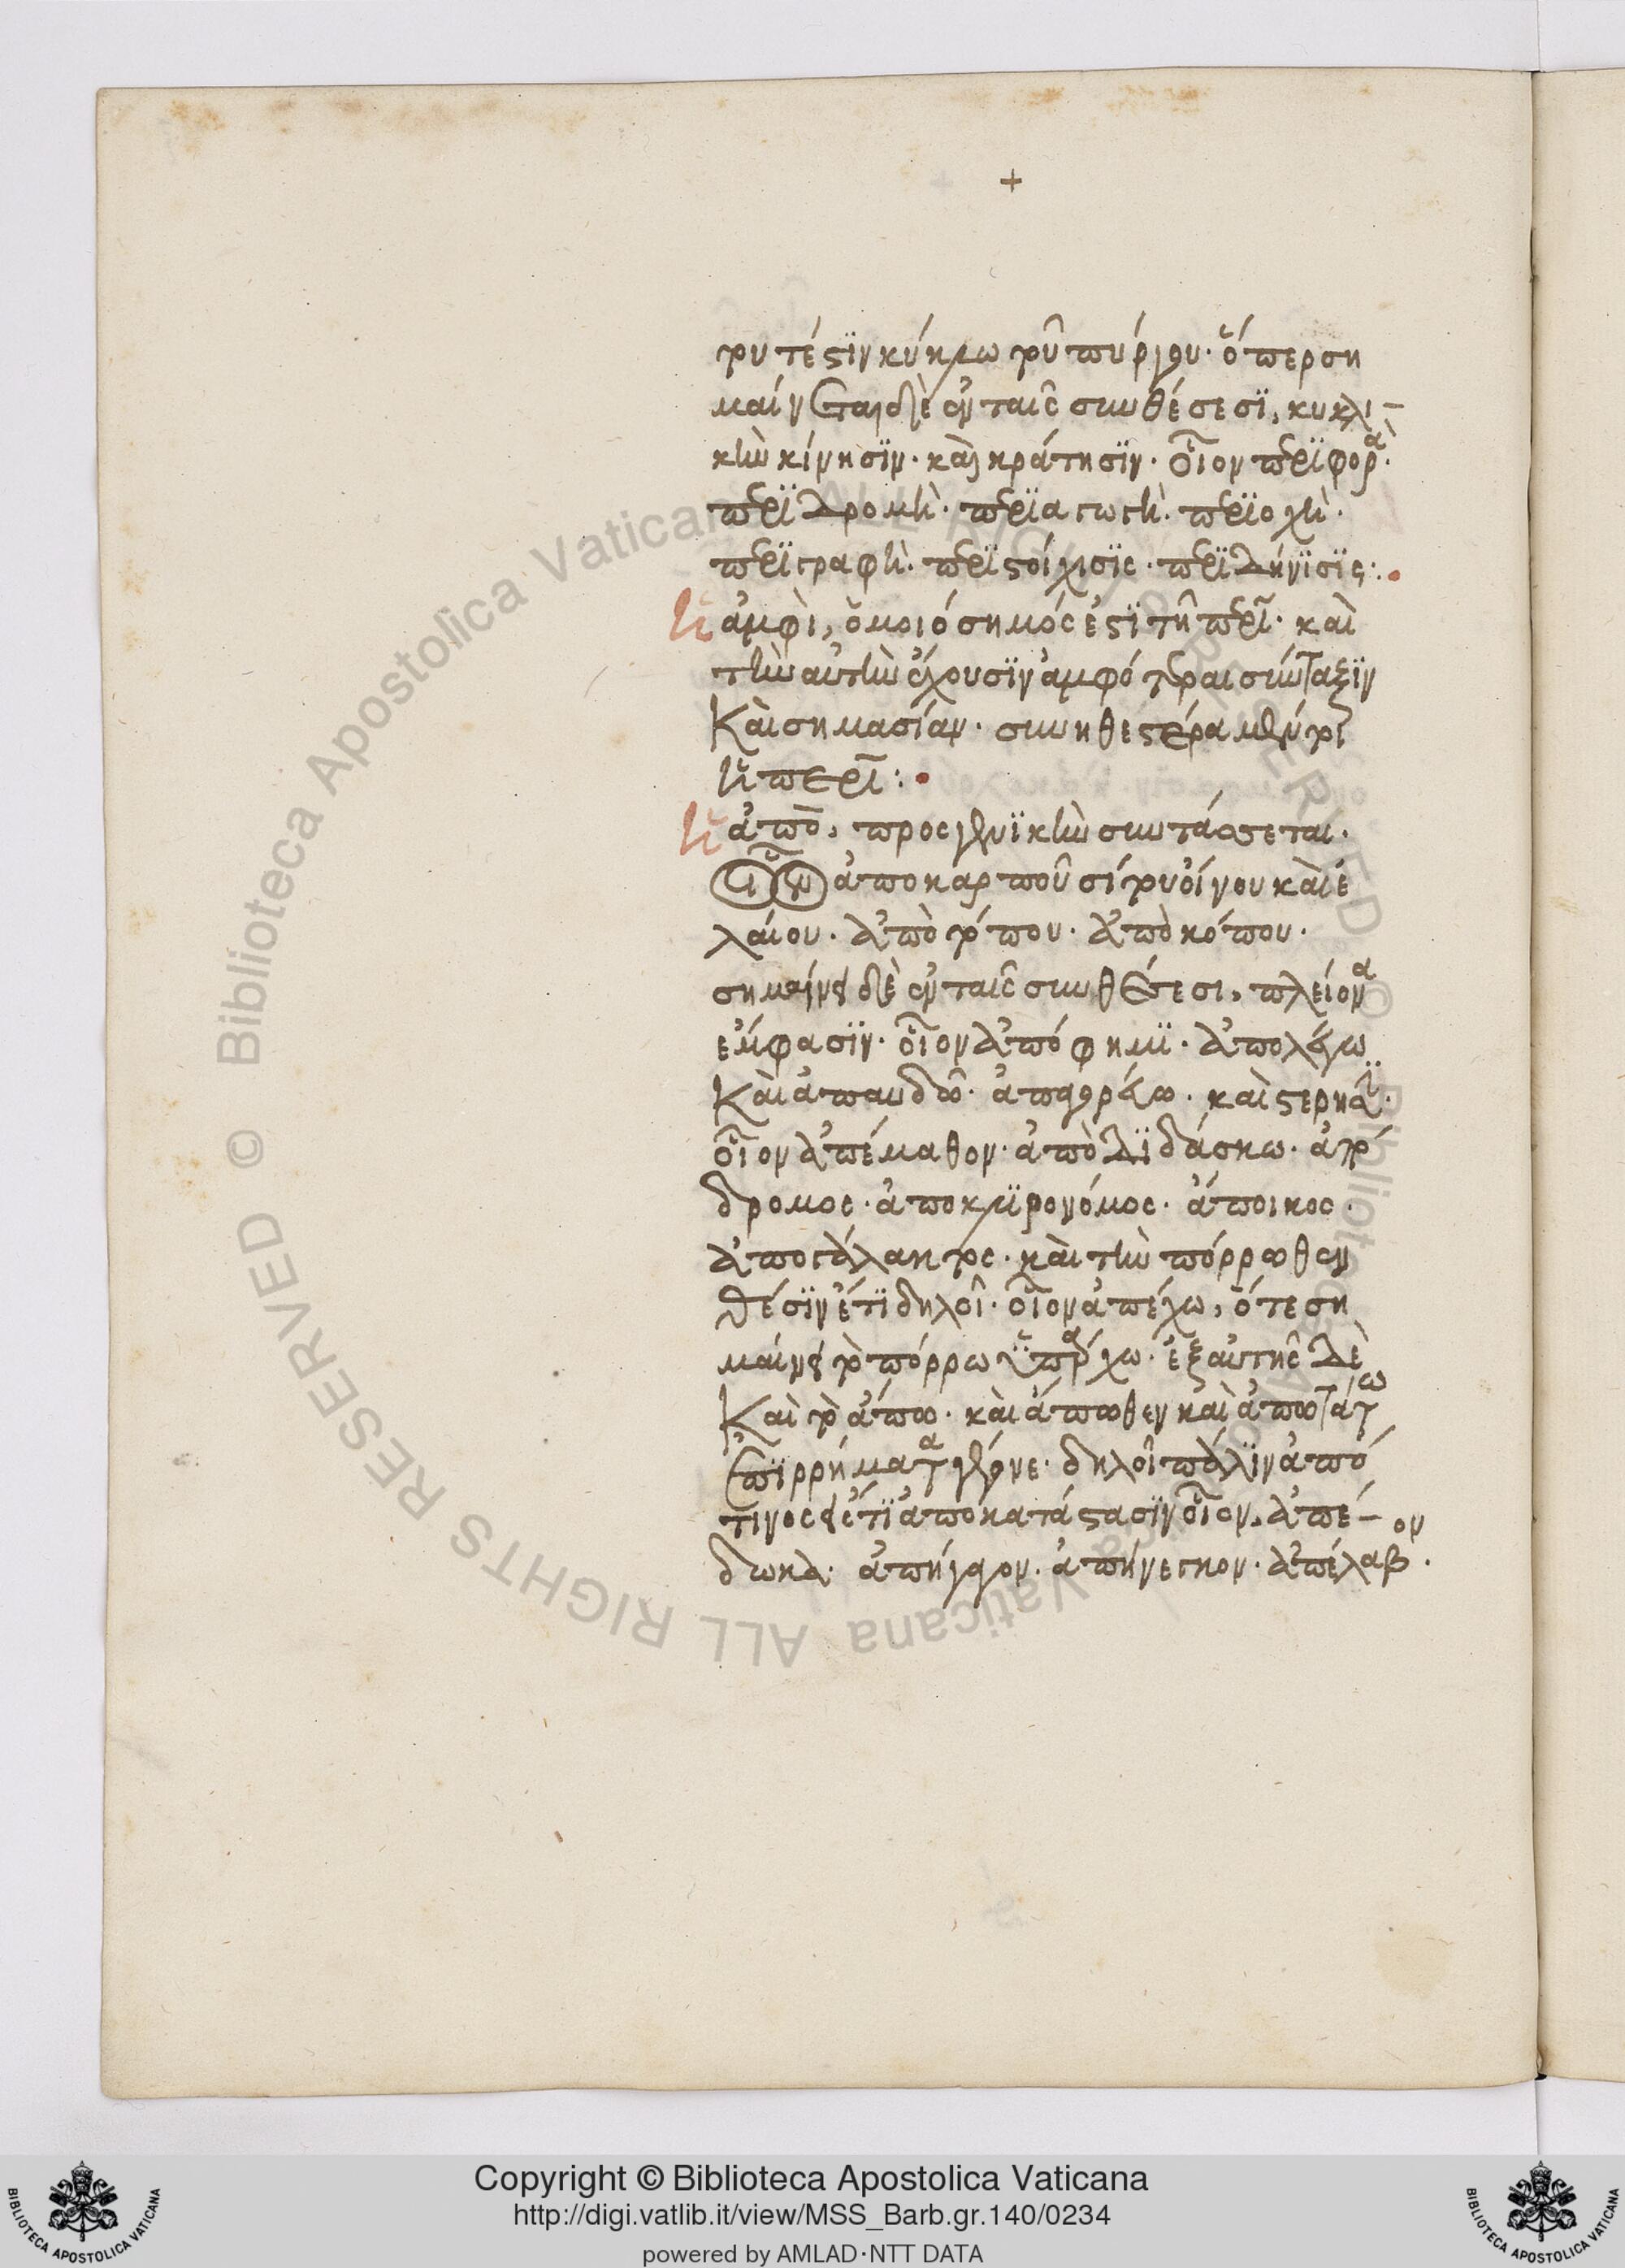 +
τουτέστιν κύκλω τοῦ πύργου· ὅπερ ση
μαίνεται δὲ ἐν ταῖς συνθέσεσι, κυκλι–
κὴν κίνησιν· καὶ κράτησιν· οἷον περιφορὰ·
περιδρομὴ· περιαγωγὴ· περιοχὴ·
περιγραφὴ· περιστοίχισις· περιδίνισις:·
ἡ ἀμφὶ, ὁμοιόσημός ἐστι τῆ περὶ· καὶ
τὴν αὐτὴν ἔχουσιν ἀμφότεραι σύνταξιν
καὶ σημασίαν· συνηθεστέρα μέντοι
ἡ περὶ:·
ἡ ἀπὸ, προς γενικὴν συντάσσεται·
οἷον ἀπο καρποῦ σίτου οἴνου καὶ ἐ
λαίου· ἀπὸ τόπου· ἀπὸ κόπου·
σημαίνει δὲ ἐν ταῖς συνθέσεσι, πλείονα
ἔμφασιν· οἷον ἀπόφημι· ἀπολέγω
καὶ ἀπαυδῶ· ἀπαγορεύω· καὶ στέρησιν·
οἷον ἀπέμαθον· ἀπὸ διδάσκω· ἀπό
δρομος· ἀποκληρονόμος· ἄποικος·
ἀπογάλακτος· καὶ τὴν πόρρωθεν
θέσιν ἔτι δηλοῖ· οἷον ἀπέχω, ὅτε ση
μαίνει τὸ πόρρω ὑπάρχω· ἐξ αὐτῆς δὲ
καὶ τὸ ἄπω· καὶ ἄπωθεν καὶ ἀπωτάτω
ἐπιρρήματα γέγονε· δηλοῖ πάλιν ἀπό
τινος ἔτι ἀποκατάστασιν οἷον, ἀπέ–
δωκα· ἀπήγαγον· ἀπήνεγκον· ἀπέλαβον·
Copyright © Biblioteca Apostolica Vaticana
http://digi.vatlib.it/view/MSS_Barb.gr.140/0234
powered by AMLAD·NTT DATA